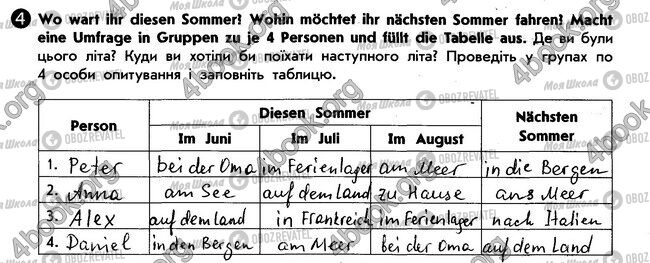 4 Wo wart ihr diesen Sommer! Wohin möchtet ihr nächsten Sommer fahren! Macht
eine Umfrage in Gruppen zu je 4 Personen und füllt die Tabelle aus. Де ви були
цього літа? Куди ви хотіли би поїхати наступного літа? Проведіть у групах по
4 особи опитування і заповніть таблицю.
Person Diesen Sommer Nächsten Sommer
Im Juni Im Juli Im August
1. Peter bei der Oma im Ferienlager am Meer in die Bergen
2. Anna am See auf dem Land zu Hause ans Meer
3. Alex auf dem Land in Frankreich im Ferienlager nach Italien
4. Daniel in den Bergen am Meer bei der Oma auf dem Land
4book.org
Моя Школа
OBOZREVATEL